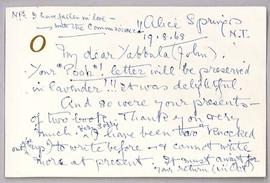 NB. I have fallen in love
with the Commissioner!
"Alice Springs
N.T.
19.8.68
My dear Yabbuta (John),
Your "Posh" letter will be preserved
in lavender!!! It was delightful.
And so were your presents –
of two books. Thank you very
much. I have been too knocked
up to write before & cannot write
more at present. It must await for
return